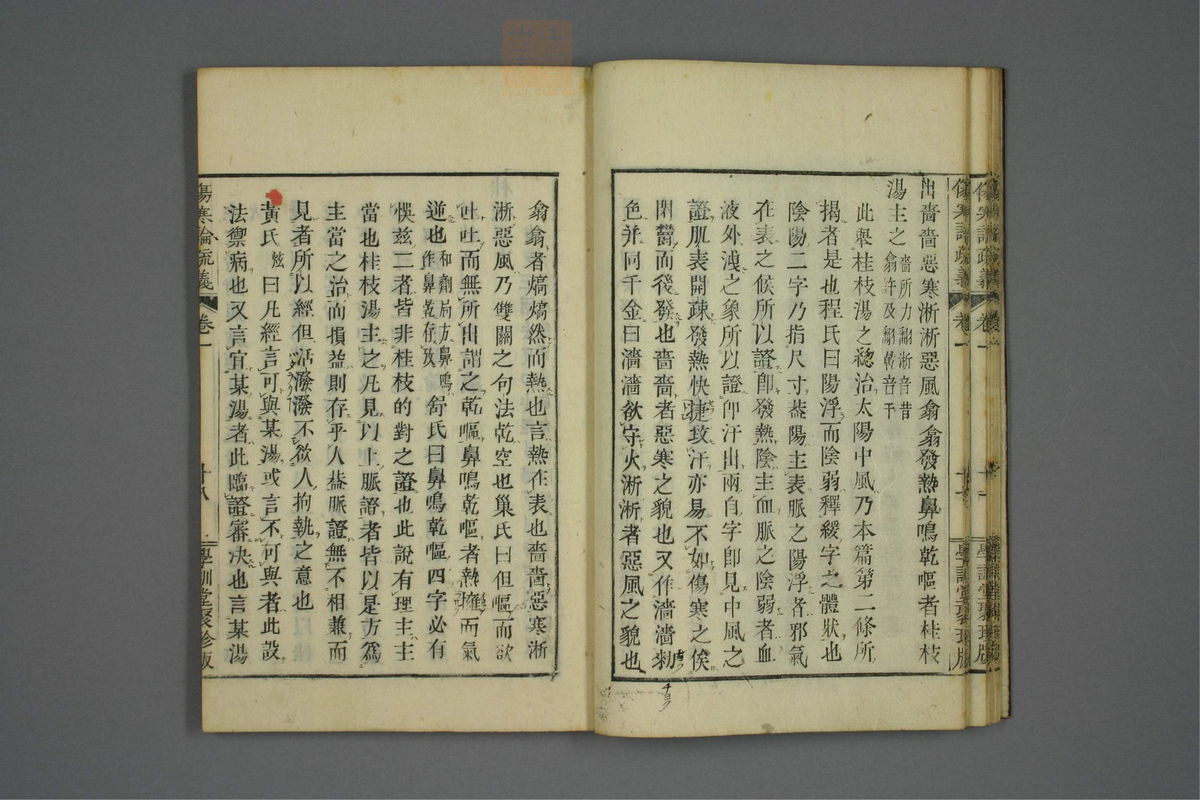 出嗇嗇惡寒淅淅惡風翕翕發熱鼻鳴乾嘔者桂枝
湯主之嗇所力翻淅音昔翕許及翻乾音干
此舉桂枝湯之總治太陽中風乃本篇第二條所
揭者是也程氏曰陽浮而陰弱釋緩字之體狀也
陰陽二字乃指尺寸葢陽主表脈之陽浮者邪氣
在表之候所以證卽發熱陰主血脈之陰弱者血
液外洩之象所以證卽汗出兩自字卽見中風之
證肌表開疎發熱快捷致汗亦易不如傷寒之俟
閉鬱而後發也嗇嗇者惡寒之貌也又作濇濇勑
色并同千金曰濇濇欲守火淅淅者惡風之貌也
翕翕者熇熇然而熱也言熱在表也嗇嗇惡寒淅
淅惡風乃雙關之句法乾空也巢氏曰但嘔而欲
吐吐而無所出謂之乾嘔鼻鳴乾嘔者熱擁而氣
逆也和劑局方鼻鳴作鼻乾存攷舒氏曰鼻鳴乾嘔四字必有
悞茲二者皆非桂枝的對之證也此說有理主主
當也桂枝湯主之凡見以上脈證者皆以是方爲
主當之治而損益則存乎人葢脈證無不相兼而
見者所以經但活潑潑不欲人拘執之意也
黃氏炫曰凡經言可與某湯或言不可與者此設
法禦病也又言宜某湯者此臨證審决也言某湯
傷寒論疏義
卷一
十八
學訓堂聚珍版